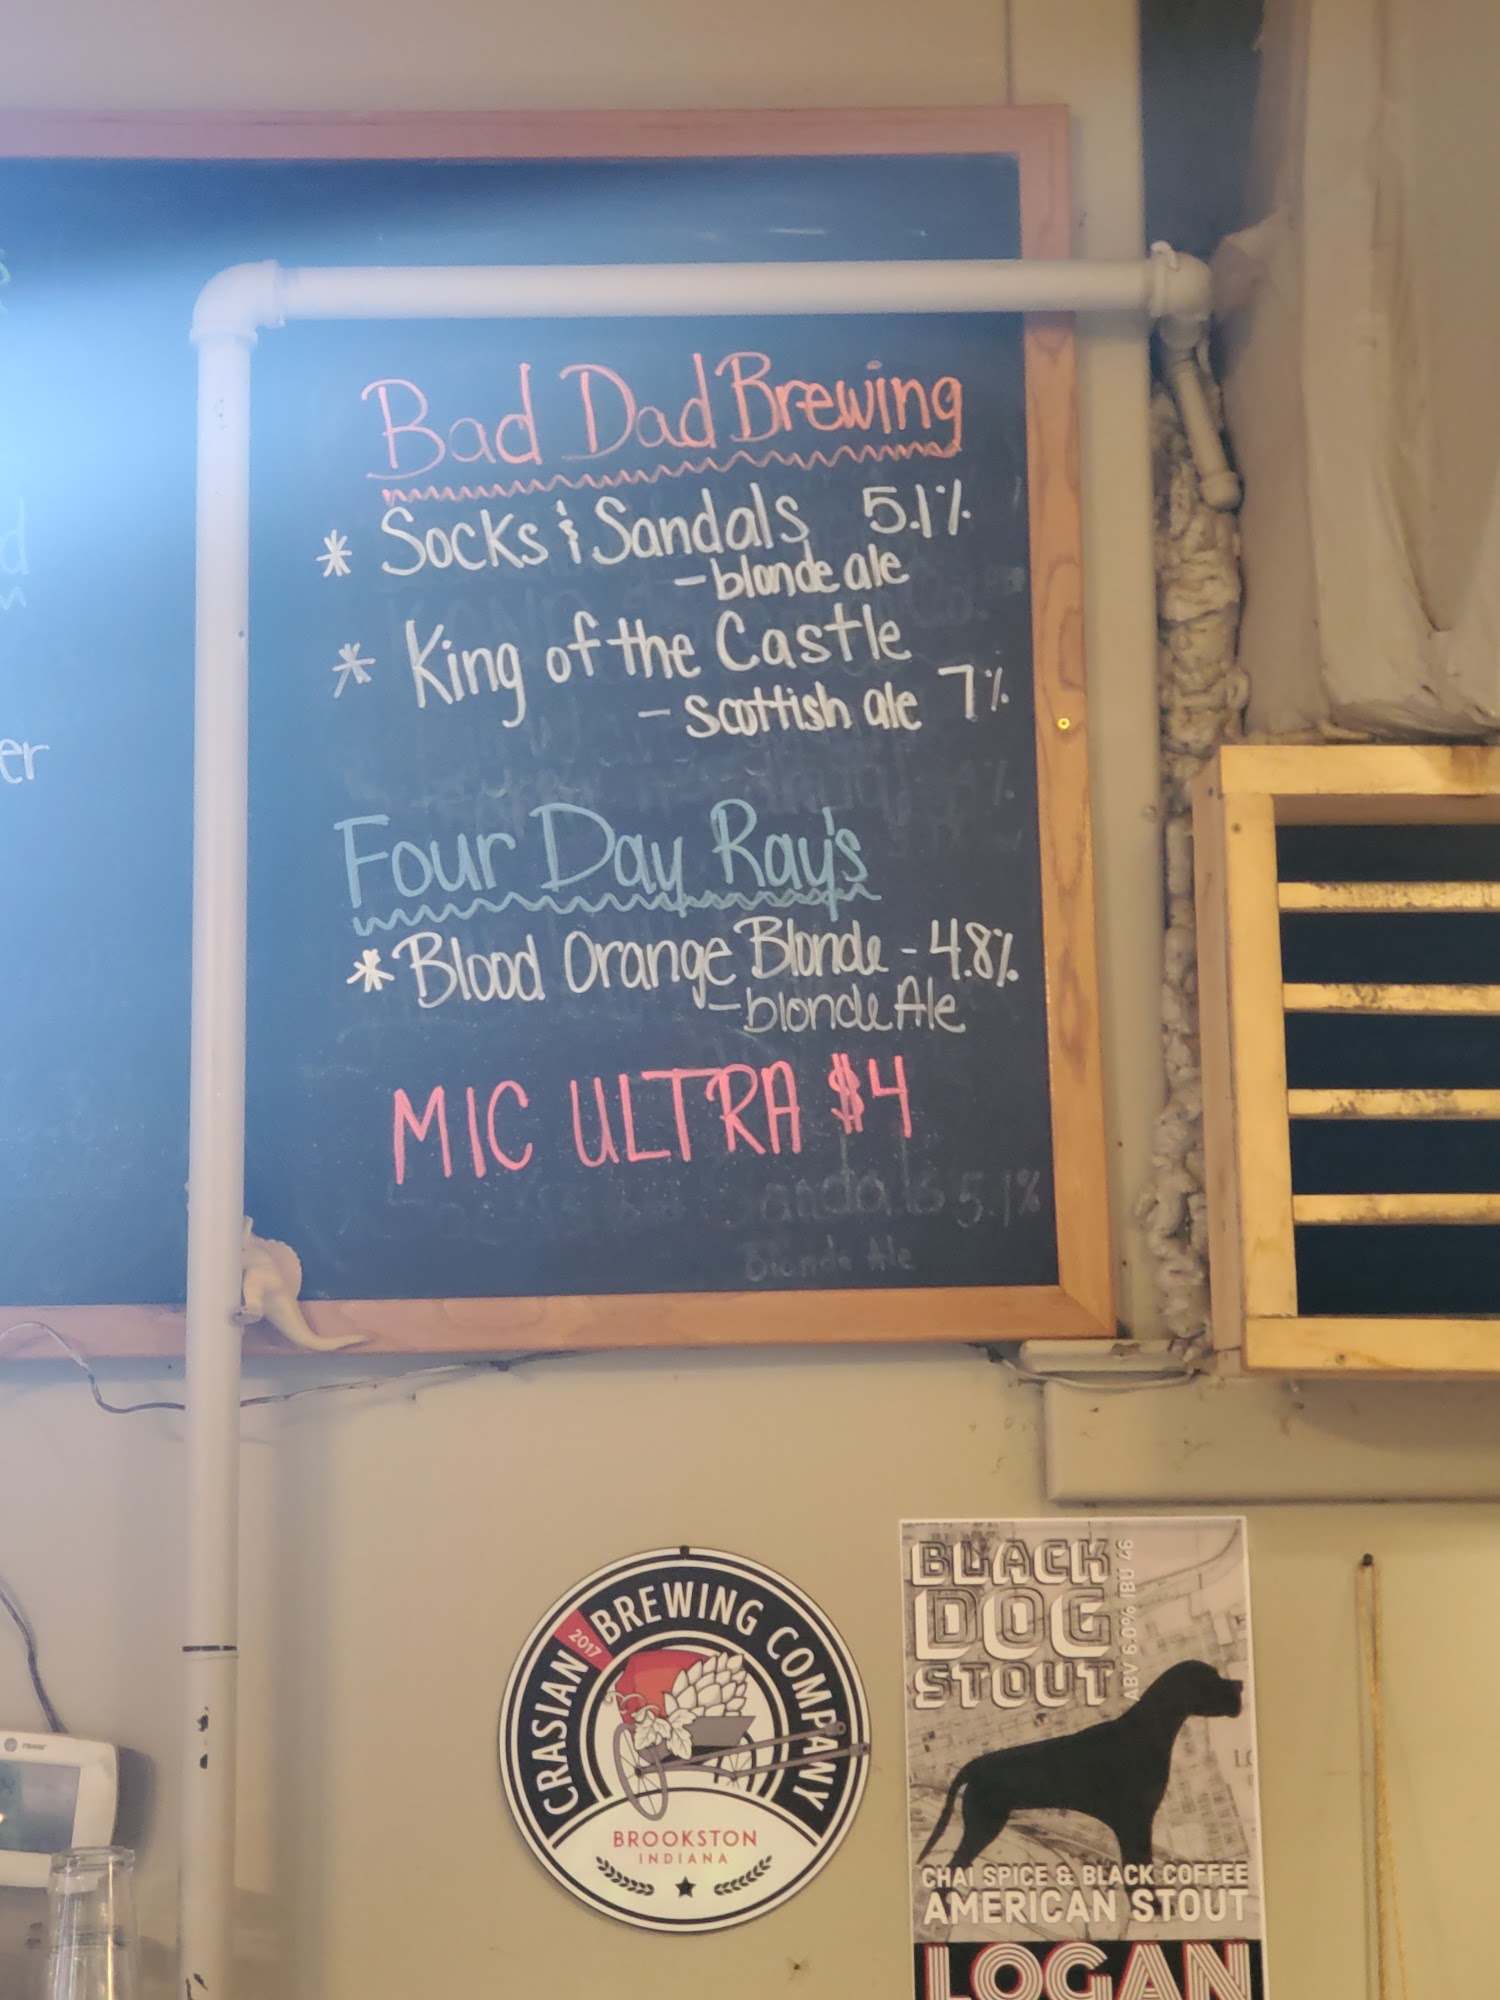 er
Bad Dad Brewing
* Socks & Sandals 5.1%
- blonde ale
* King of the Castle
- scottish ale 7%
Four Day Ray's
* Blood Orange Blonde - 4.8%
- blonde Ale
MIC ULTRA $4
Sandals 5.1%
Blonde Ale
CRASIAN 2017 BREWING COMPANY
BROOKSTON
INDIANA
BLACK
DOG
STOUT
ABV 6.0% IBU 46
CHAI SPICE & BLACK COFFEE
AMERICAN STOUT
LOGAN
TRANE